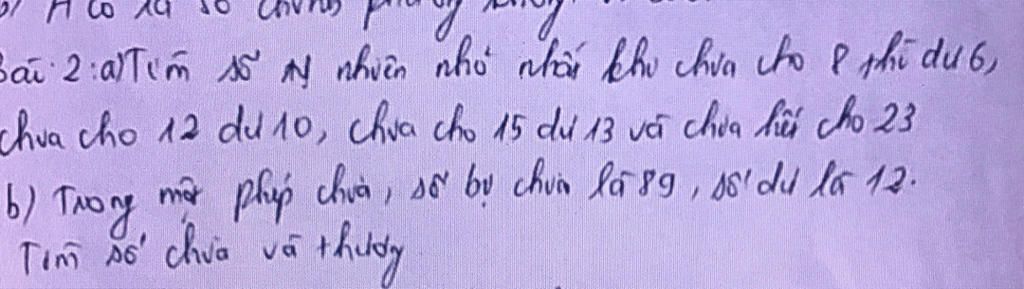 b) A có là số chính phương không
Bài 2: a) Tìm số tự nhiên nhỏ nhất khi chia cho 8 thì dư 6,
chia cho 12 dư 10, chia cho 15 dư 13 và chia hết cho 23
b) Trong một phép chia, số bị chia là 89, số dư là 12.
Tìm số chia và thương